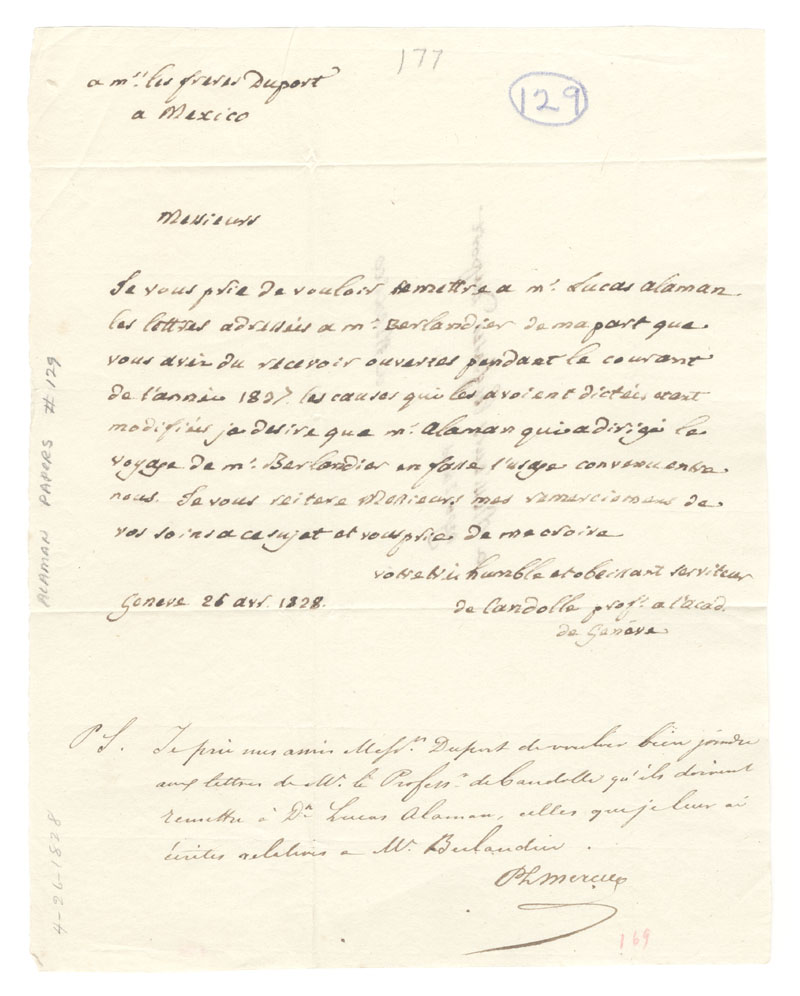 177
129
a mrs les freres Duport
a Mexico
Messieurs
Je vous prie de vouloir remettre a mr. Lucas alaman
les lettres adressées a mr. Berlandier de ma part que
vous avez du recevoir ouvertes pendant le courant
de l'année 1827. les causes qui les avoient dictées etant
modifiées je desire que mr. alaman qui a dirigé le
voyage de mr. Berlandier en fasse l'usage convenu entre
nous. Je vous reitere Messieurs mes remerciemens de
vos soins a ce sujet et vous prie de me croire
votre très humble et obeissant serviteur
Geneve 26 avr. 1828.
de Candolle profr. a l'acad.
de Genève
PS. Je prie mes amis Messrs Duport de vouloir bien joindre
aux lettres de Mr. le Profess.r de Candolle qu'ils doivent
remettre à Dn Lucas Alaman, celles que je leur ai
écrites relatives a Mr. Berlandier.
Ph Mercier
169
ALAMAN PAPERS #129
4-26-1828